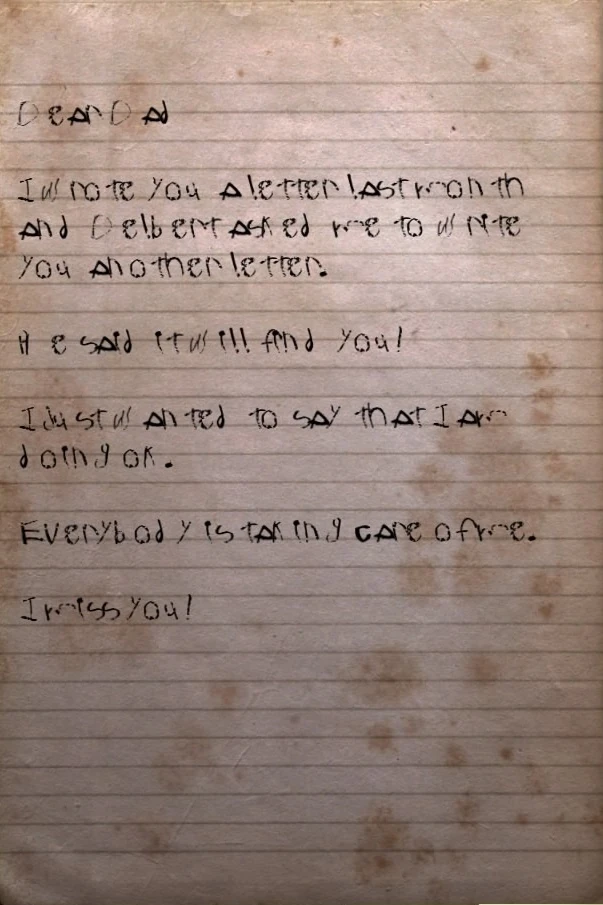 Dear Dad
I wrote you a letter last month
and Delbert asked me to write
you another letter.
He said it will find you!
I just wanted to say that I am
doing ok.
Everybody is taking care of me.
I miss you!